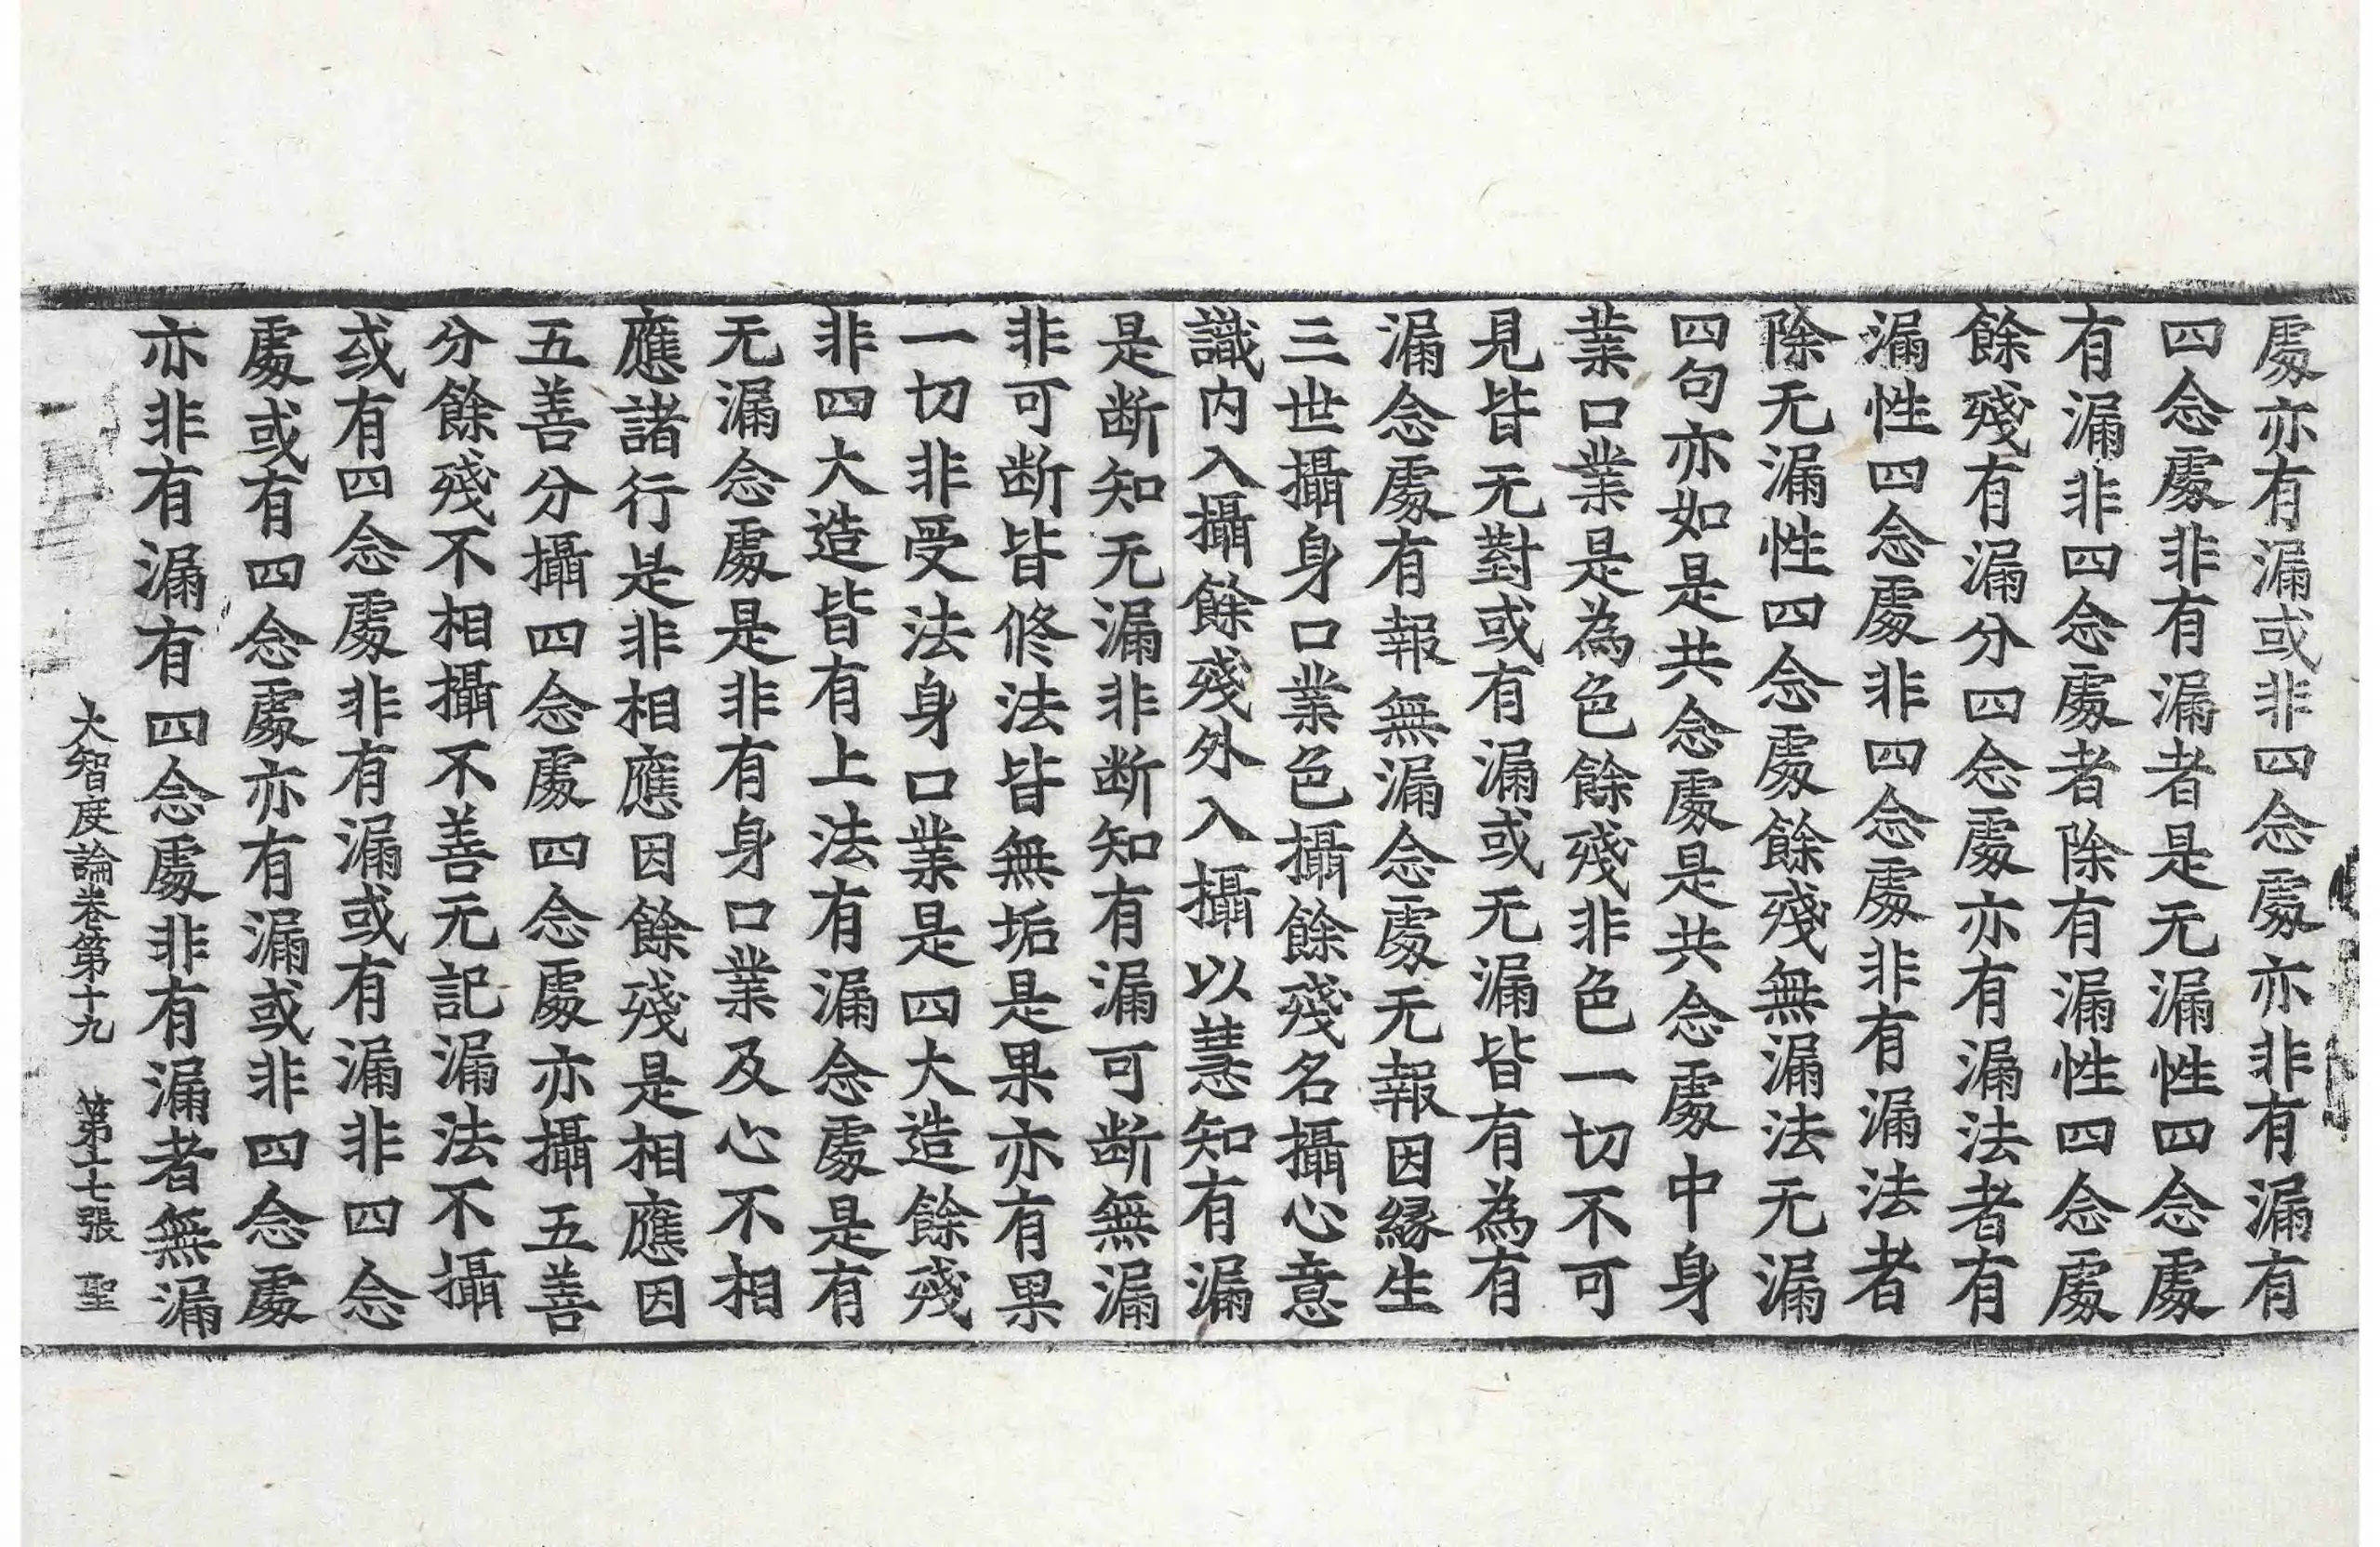 處亦有漏或非四念處亦非有漏有
四念處非有漏者是无漏性四念處
有漏非四念處者除有漏性四念處
餘殘有漏分四念處亦有漏法者有
漏性四念處非四念處非有漏法者
除无漏性四念處餘殘無漏法无漏
四句亦如是共念處是共念處中身
業口業是為色餘殘非色一切不可
見皆无對或有漏或无漏皆有為有
漏念處有報無漏念處无報因緣生
三世攝身口業色攝餘殘名攝心意
識内入攝餘殘外入攝以慧知有漏
是断知无漏非断知有漏可断無漏
非可断皆修法皆無垢是果亦有果
一切非受法身口業是四大造餘殘
非四大造皆有上法有漏念處是有
无漏念處是非有身口業及心不相
應諸行是非相應因餘殘是相應因
五善分攝四念處四念處亦攝五善
分餘殘不相攝不善无記漏法不攝
或有四念處非有漏或有漏非四念
處或有四念處亦有漏或非四念處
亦非有漏有四念處非有漏者無漏
大智度論卷第十九 第十七張 聖